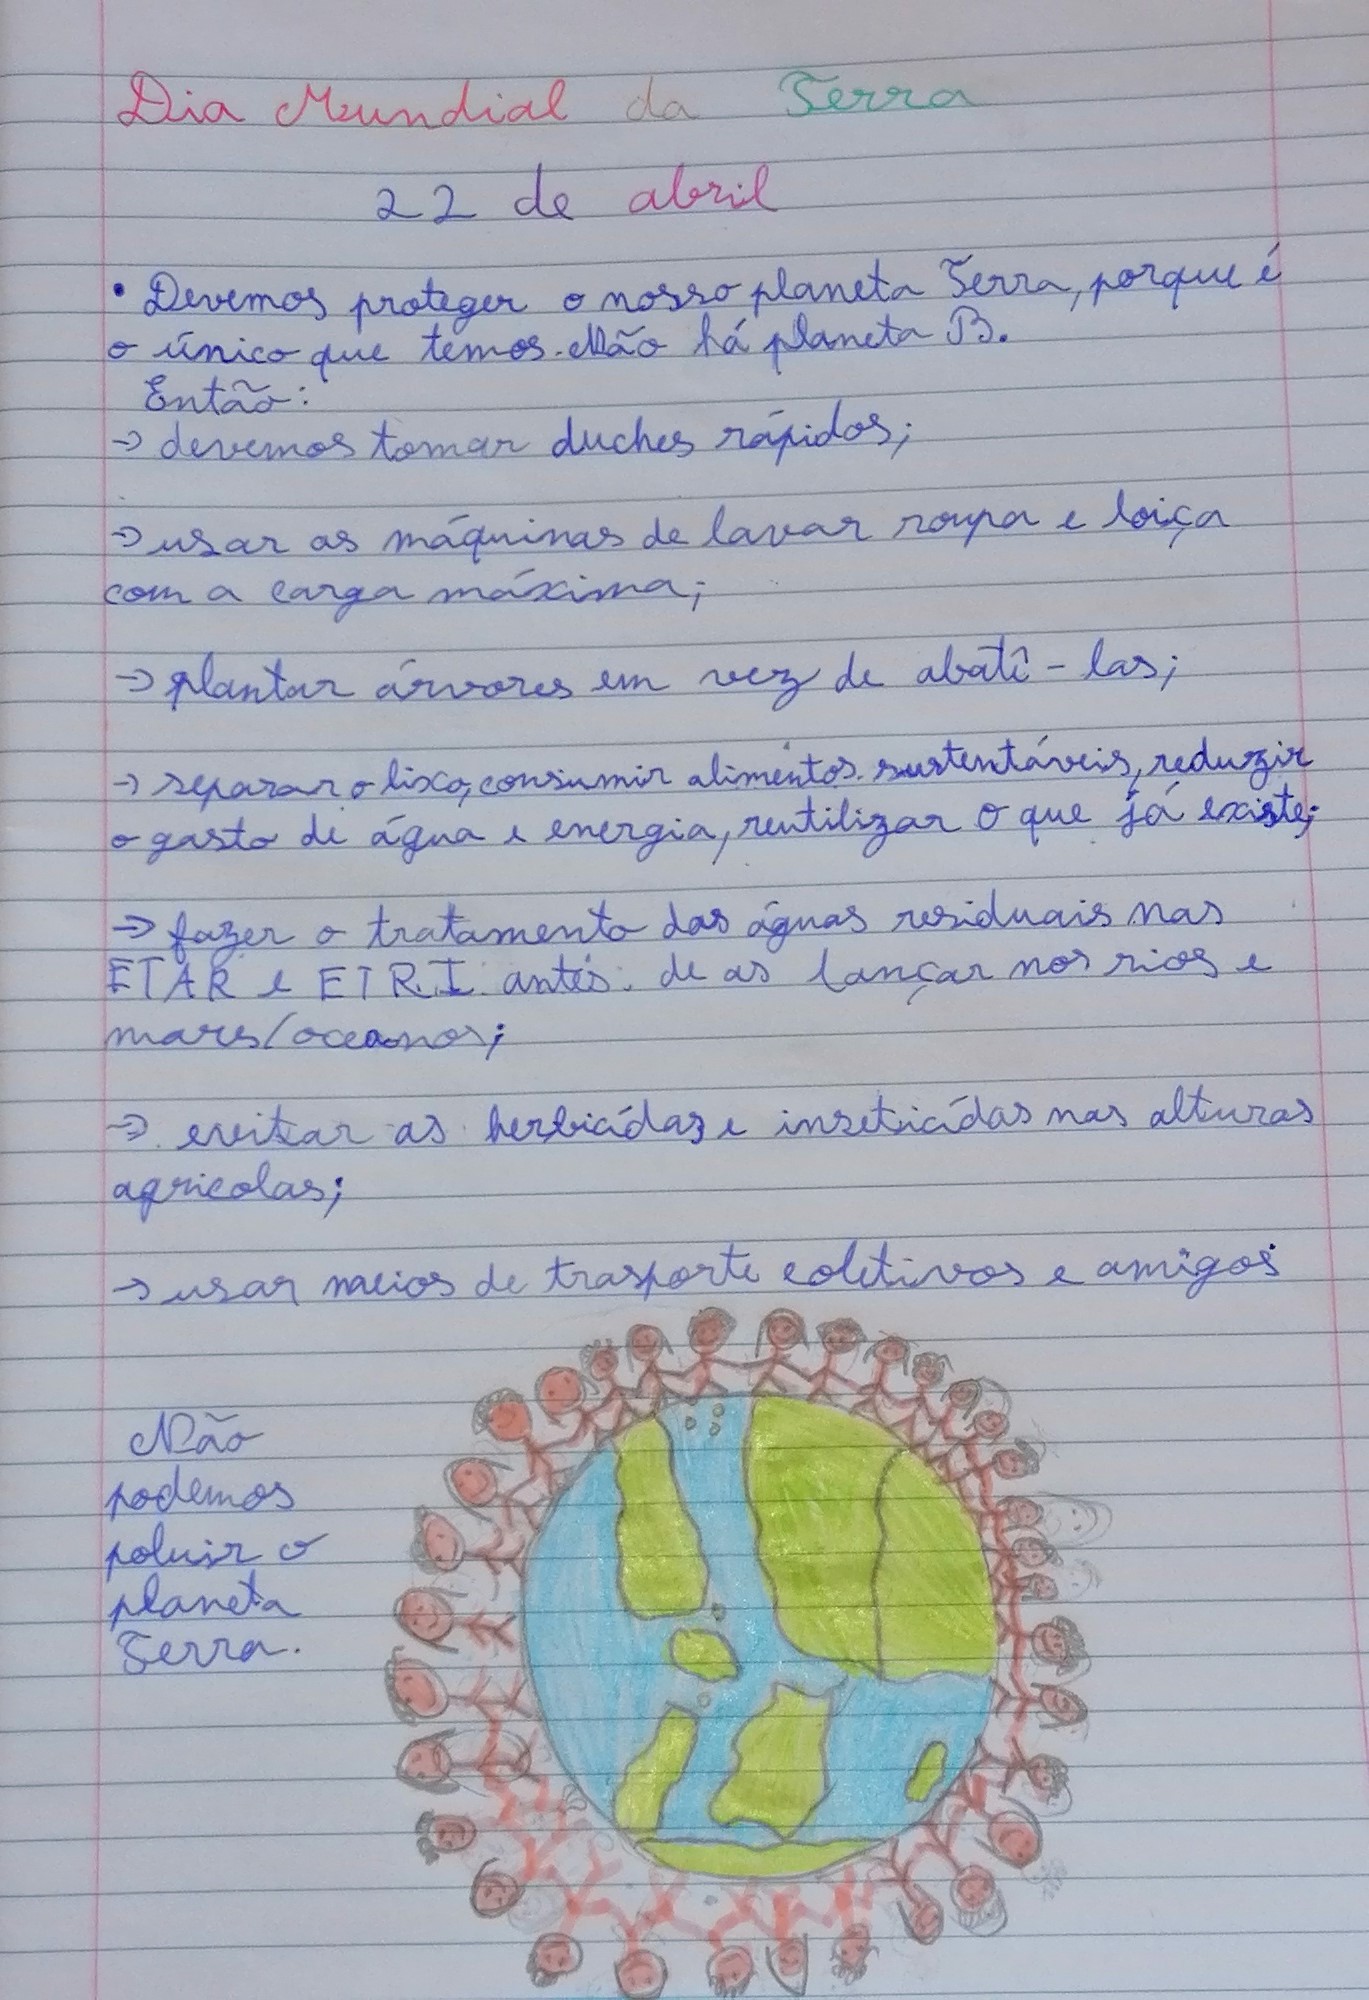 Dia Mundial da Terra
22 de abril
• Devemos proteger o nosso planeta Terra, porque é
o único que temos. Não há planeta B.
Então:
→ devemos tomar duches rápidos;
→ usar as máquinas de lavar roupa e loiça
com a carga máxima;
→ plantar árvores em vez de abatê-las;
→ separar o lixo, consumir alimentos sustentáveis, reduzir
o gasto de água e energia, reutilizar o que já existe;
→ fazer o tratamento das águas residuais nas
ETAR e ETRI antes de as lançar nos rios e
mares/oceanos;
→ evitar as herbicídas e inseticídas nas alturas
agricolas;
→ usar meios de trasporte coletivos e amigos
Não
podemos
poluir o
planeta
Terra.